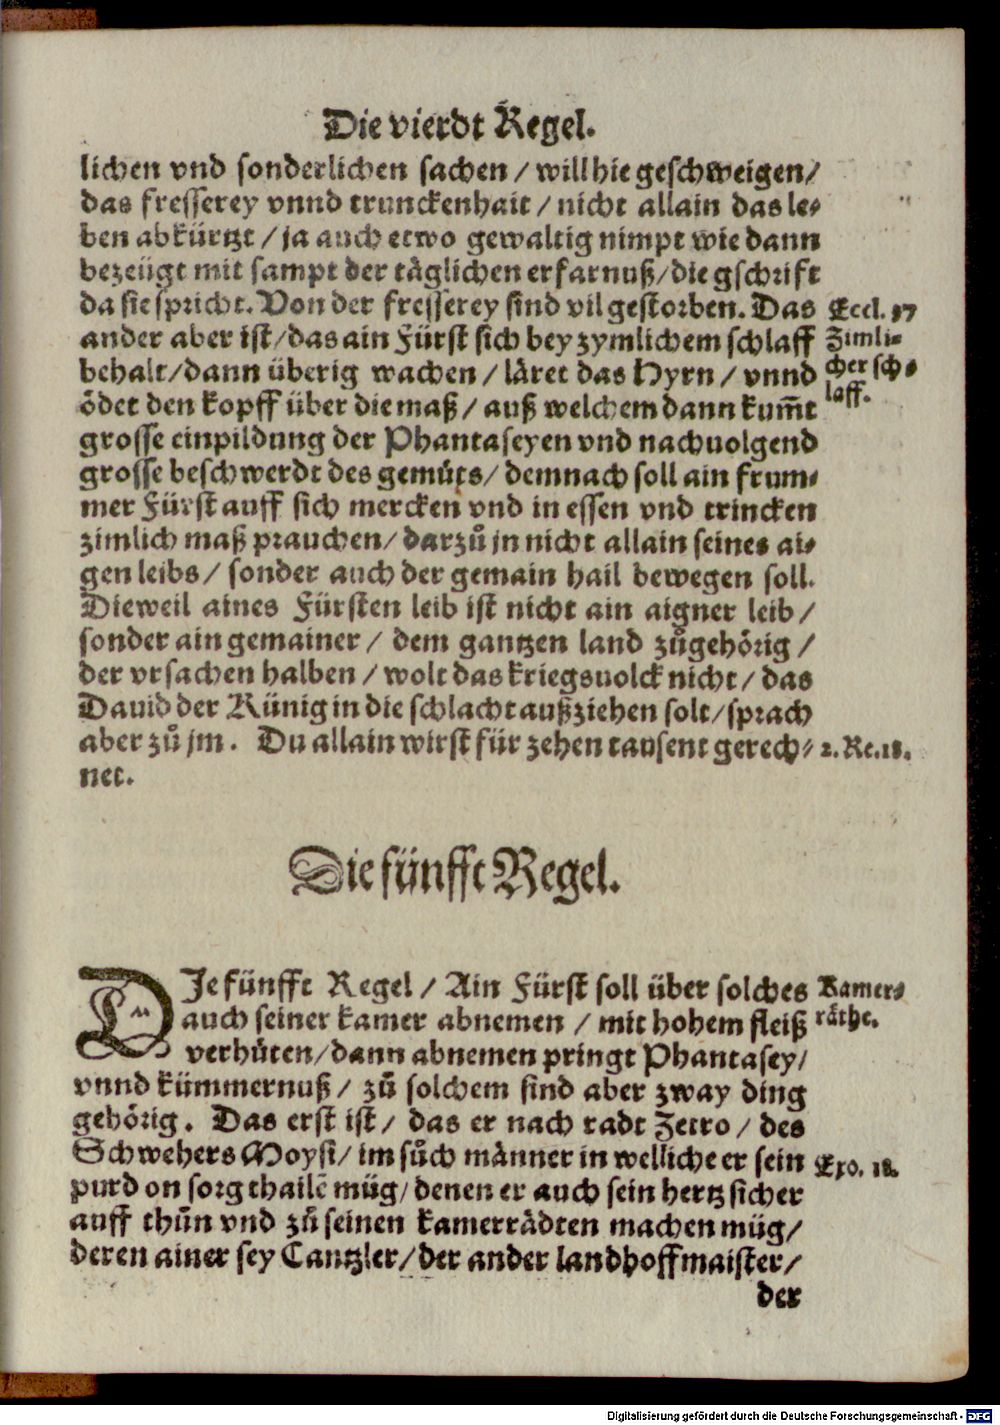 Die vierdt Regel.
lichen vnd sonderlichen sachen / will hie geschweigen /
das fresserey vnnd trunckenhait / nicht allain das le⸗
ben abkürtzt / ja auch etwo gewaltig nimpt wie dann
bezeügt mit sampt der täglichen erfarnuß / die gschrift
da sie spricht. Von der fresserey sind vil gestorben. Das
Eccl. 37
ander aber ist / das ain Fürst sich bey zymlichem schlaff
Zimli⸗
behalt / dann überig wachen / läret das Hyrn / vnnd
cher sch⸗
ödet den kopff über die maß / auß welchem dann kum̄t
laff.
grosse einpildung der Phantaseyen vnd nachuolgend
grosse beschwerdt des gemüts / demnach soll ain frum⸗
mer Fürst auff sich mercken vnd in essen vnd trincken
zimlich maß prauchen / darzů jn nicht allain seines ai⸗
gen leibs / sonder auch der gemain hail bewegen soll.
Dieweil aines Fürsten leib ist nicht ain aigner leib /
sonder ain gemainer / dem gantzen land zůgehörig /
der vrsachen halben / wolt das kriegsuolck nicht / das
Dauid der Künig in die schlacht außziehen solt / sprach
aber zů jm. Du allain wirst für zehen tausent gerech⸗
2. Re. 18.
net.
Die fünfft Regel.
DIe fünfft Regel / Ain Fürst soll über solches
Kamer⸗
auch seiner kamer abnemen / mit hohem fleiß
räthe.
verhüten / dann abnemen pringt Phantasey /
vnnd kümmernuß / zů solchem sind aber zway ding
gehörig. Das erst ist / das er nach radt Jetro / des
Schwehers Moysi / im sůch männer in welliche er sein
Exo. 18.
purd on sorg thailē müg / denen er auch sein hertz sicher
auff thůn vnd zů seinen kamerrädten machen müg /
deren ainer sey Cantzler / der ander landhoffmaister /
der
Digitalisierung gefördert durch die Deutsche Forschungsgemeinschaft - DFG